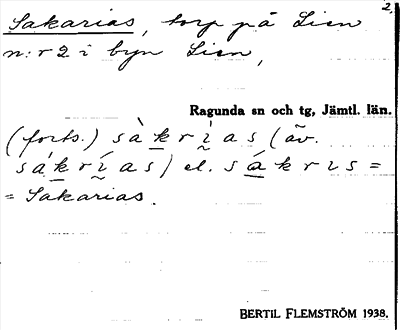 2.
Sakarias, torp på Lien
n:r 2 i byn Lien,
Ragunda sn och tg, Jämtl. län.
(forts.) sàkrìas (äv.
sákrías) el. sákrıs =
= Sakarias.
BERTIL FLEMSTRÖM 1938.